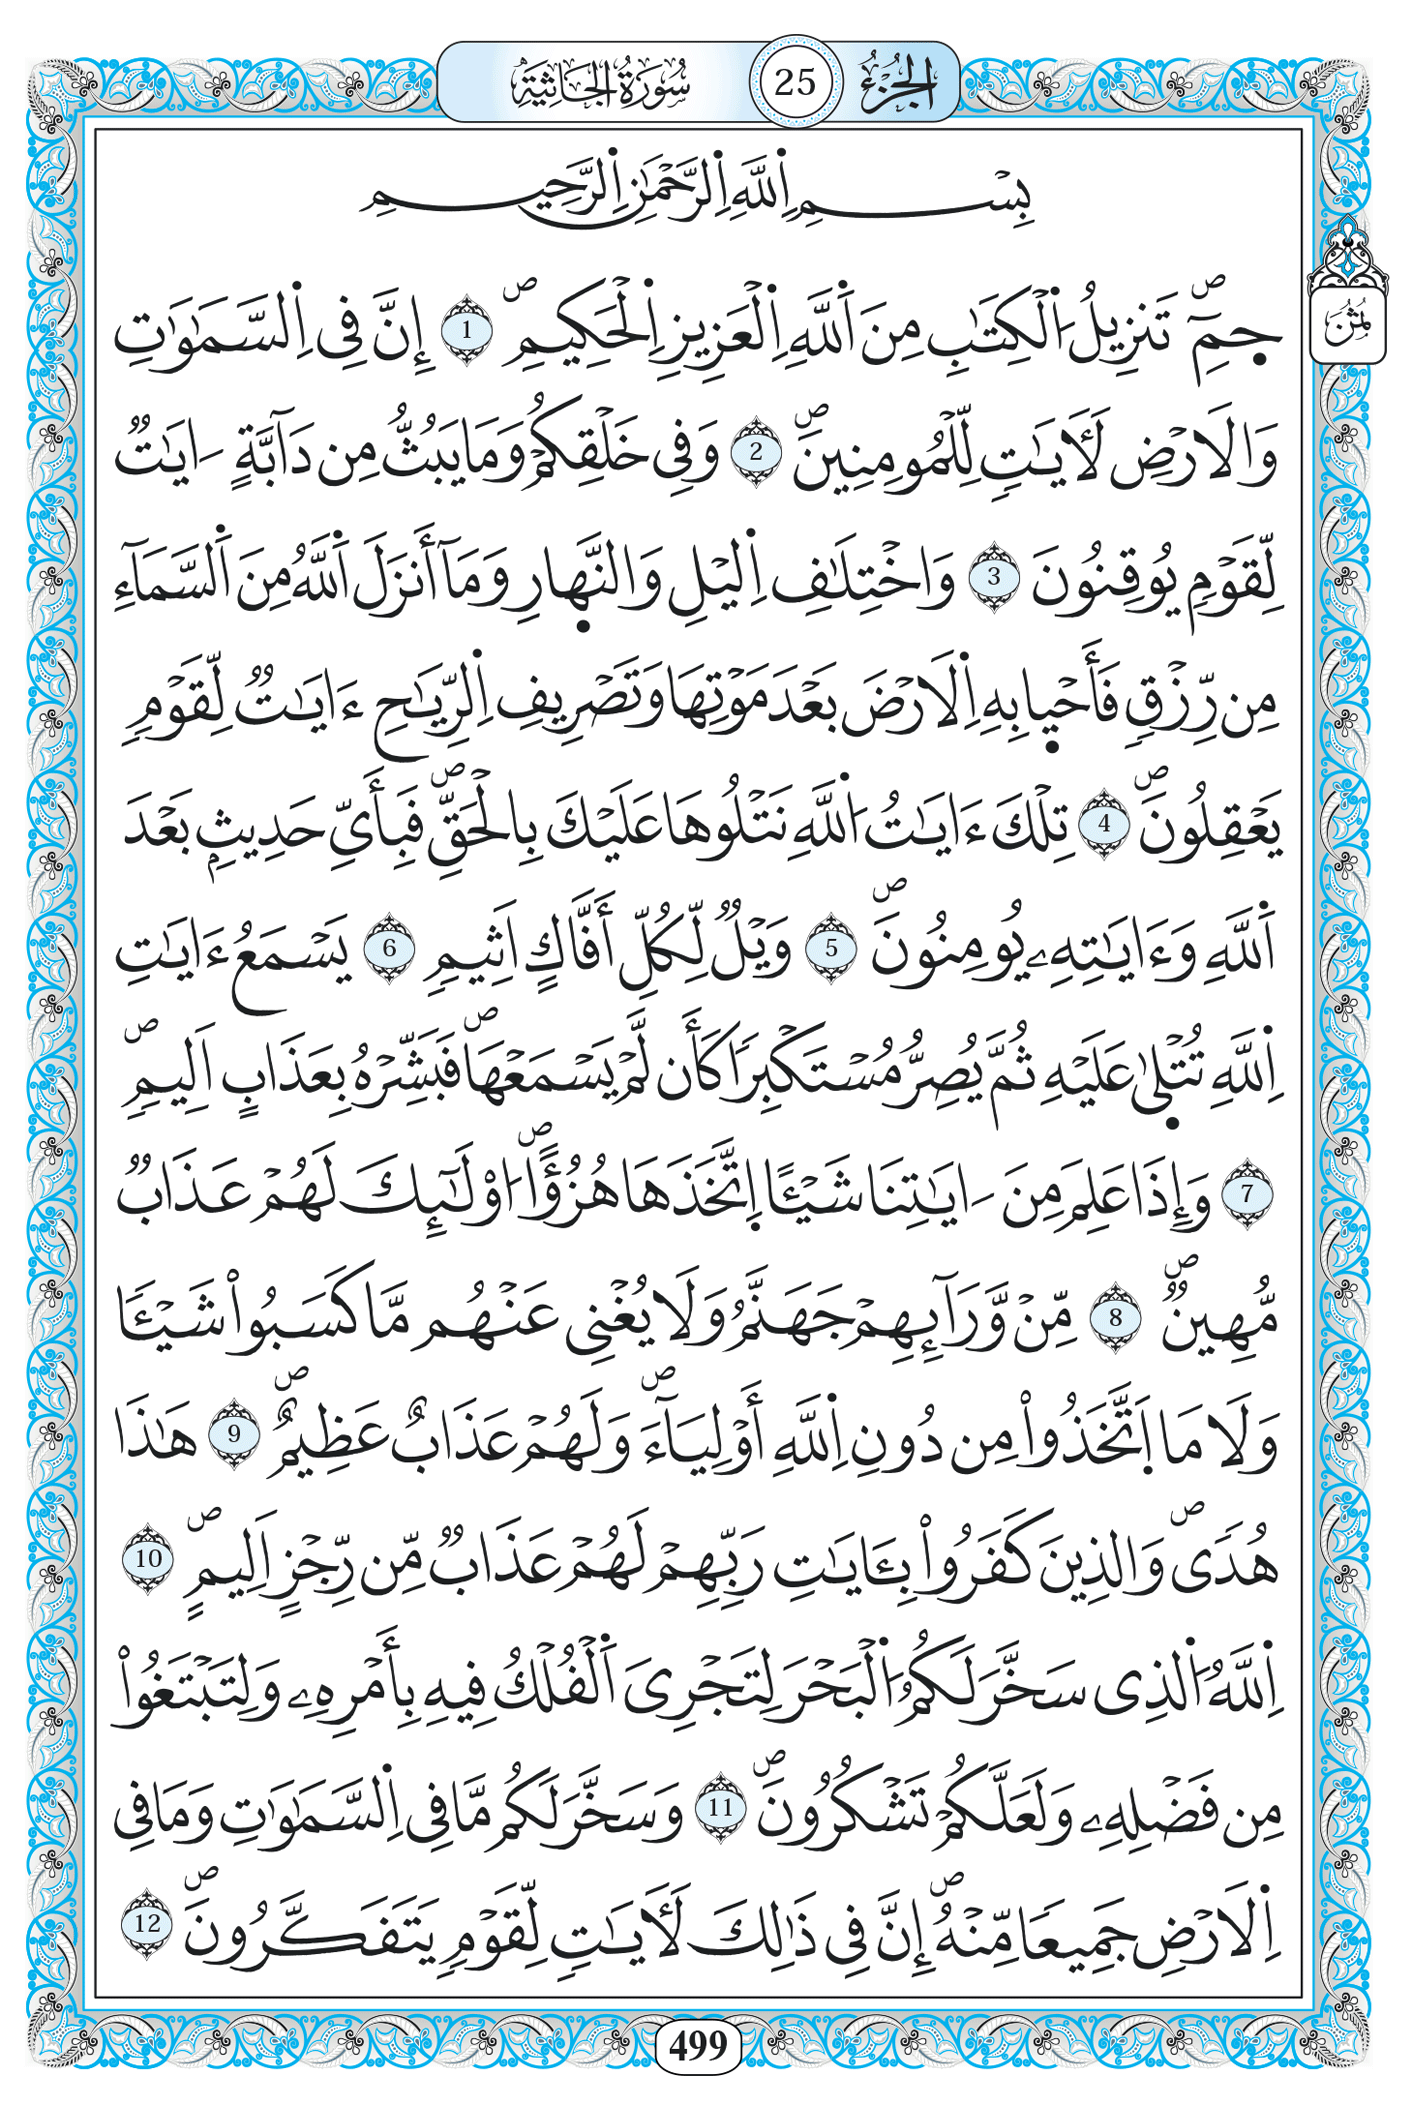 الجزء 25 سورة الجاثية
بِسْمِ اِللَّهِ اِلرَّحْمَٰنِ اِلرَّحِيمِ
ثمن
جمِٓۖ تَنزِيلُ اُ۬لْكِتَٰبِ مِنَ اَ۬للَّهِ اِ۬لْعَزِيزِ اِ۬لْحَكِيمِۖ 1 إِنَّ فِے اِ۬لسَّمَٰوَٰتِ
وَالَارْضِ لَأٓيَٰتٖ لِّلْمُومِنِينَۖ 2 وَفِے خَلْقِكُمْ وَمَا يَبُثُّ مِن دَآبَّةٍ ـ ايَٰتٞ
لِّقَوْمٖ يُوقِنُونَ 3 وَاخْتِلَٰفِ اِ۬ليْلِ وَالنَّهارِ وَمَآ أَنزَلَ اَ۬للَّهُ مِنَ اَ۬لسَّمَآءِ
مِن رِّزْقٖ فَأَحْيا بِهِ اِ۬لَارْضَ بَعْدَ مَوْتِهَا وَتَصْرِيفِ اِ۬لرِّيَٰحِ ءَايَٰتٞ لِّقَوْمٖ
يَعْقِلُونَۖ 4 تِلْكَ ءَايَٰتُ اُ۬للَّهِ نَتْلُوهَا عَلَيْكَ بِالْحَقِّۖ فَبِأَيِّ حَدِيثِۢ بَعْدَ
اَ۬للَّهِ وَءَايَٰتِهِۦ يُومِنُونَۖ 5 وَيْلٞ لِّكُلِّ أَفَّاكٍ اَثِيمٖ 6 يَسْمَعُ ءَايَٰتِ
اِ۬للَّهِ تُتْل۪يٰ عَلَيْهِ ثُمَّ يُصِرُّ مُسْتَكْبِراٗ كَأَن لَّمْ يَسْمَعْهَاۖ فَبَشِّرْهُ بِعَذَابٍ اَلِيمٖۖ
7 وَإِذَا عَلِمَ مِنَ ـ ايَٰتِنَا شَيْـٔاً اِ۪تَّخَذَهَا هُزُؤاًۖ ا۟وْلَٰٓئِكَ لَهُمْ عَذَابٞ
مُّهِينٞۖ 8 مِّنْ وَّرَآئِهِمْ جَهَنَّمُ وَلَا يُغْنِے عَنْهُم مَّا كَسَبُواْ شَيْـٔاٗ
وَلَا مَا اَ۪تَّخَذُواْ مِن دُونِ اِ۬للَّهِ أَوْلِيَآءَۖ وَلَهُمْ عَذَابٌ عَظِيمٌۖ 9 هَٰذَا
هُديٗۖ وَالذِينَ كَفَرُواْ بِـَٔايَٰتِ رَبِّهِمْ لَهُمْ عَذَابٞ مِّن رِّجْزٍ اَلِيمٍۖ 10
اِ۬للَّهُ اُ۬لذِے سَخَّرَ لَكُمُ اُ۬لْبَحْرَ لِتَجْرِيَ اَ۬لْفُلْكُ فِيهِ بِأَمْرِهِۦ وَلِتَبْتَغُواْ
مِن فَضْلِهِۦ وَلَعَلَّكُمْ تَشْكُرُونَۖ 11 وَسَخَّرَ لَكُم مَّا فِے اِ۬لسَّمَٰوَٰتِ وَمَا فِے
اِ۬لَارْضِ جَمِيعاٗ مِّنْهُۖ إِنَّ فِے ذَٰلِكَ لَأٓيَٰتٖ لِّقَوْمٖ يَتَفَكَّرُونَۖ 12
499